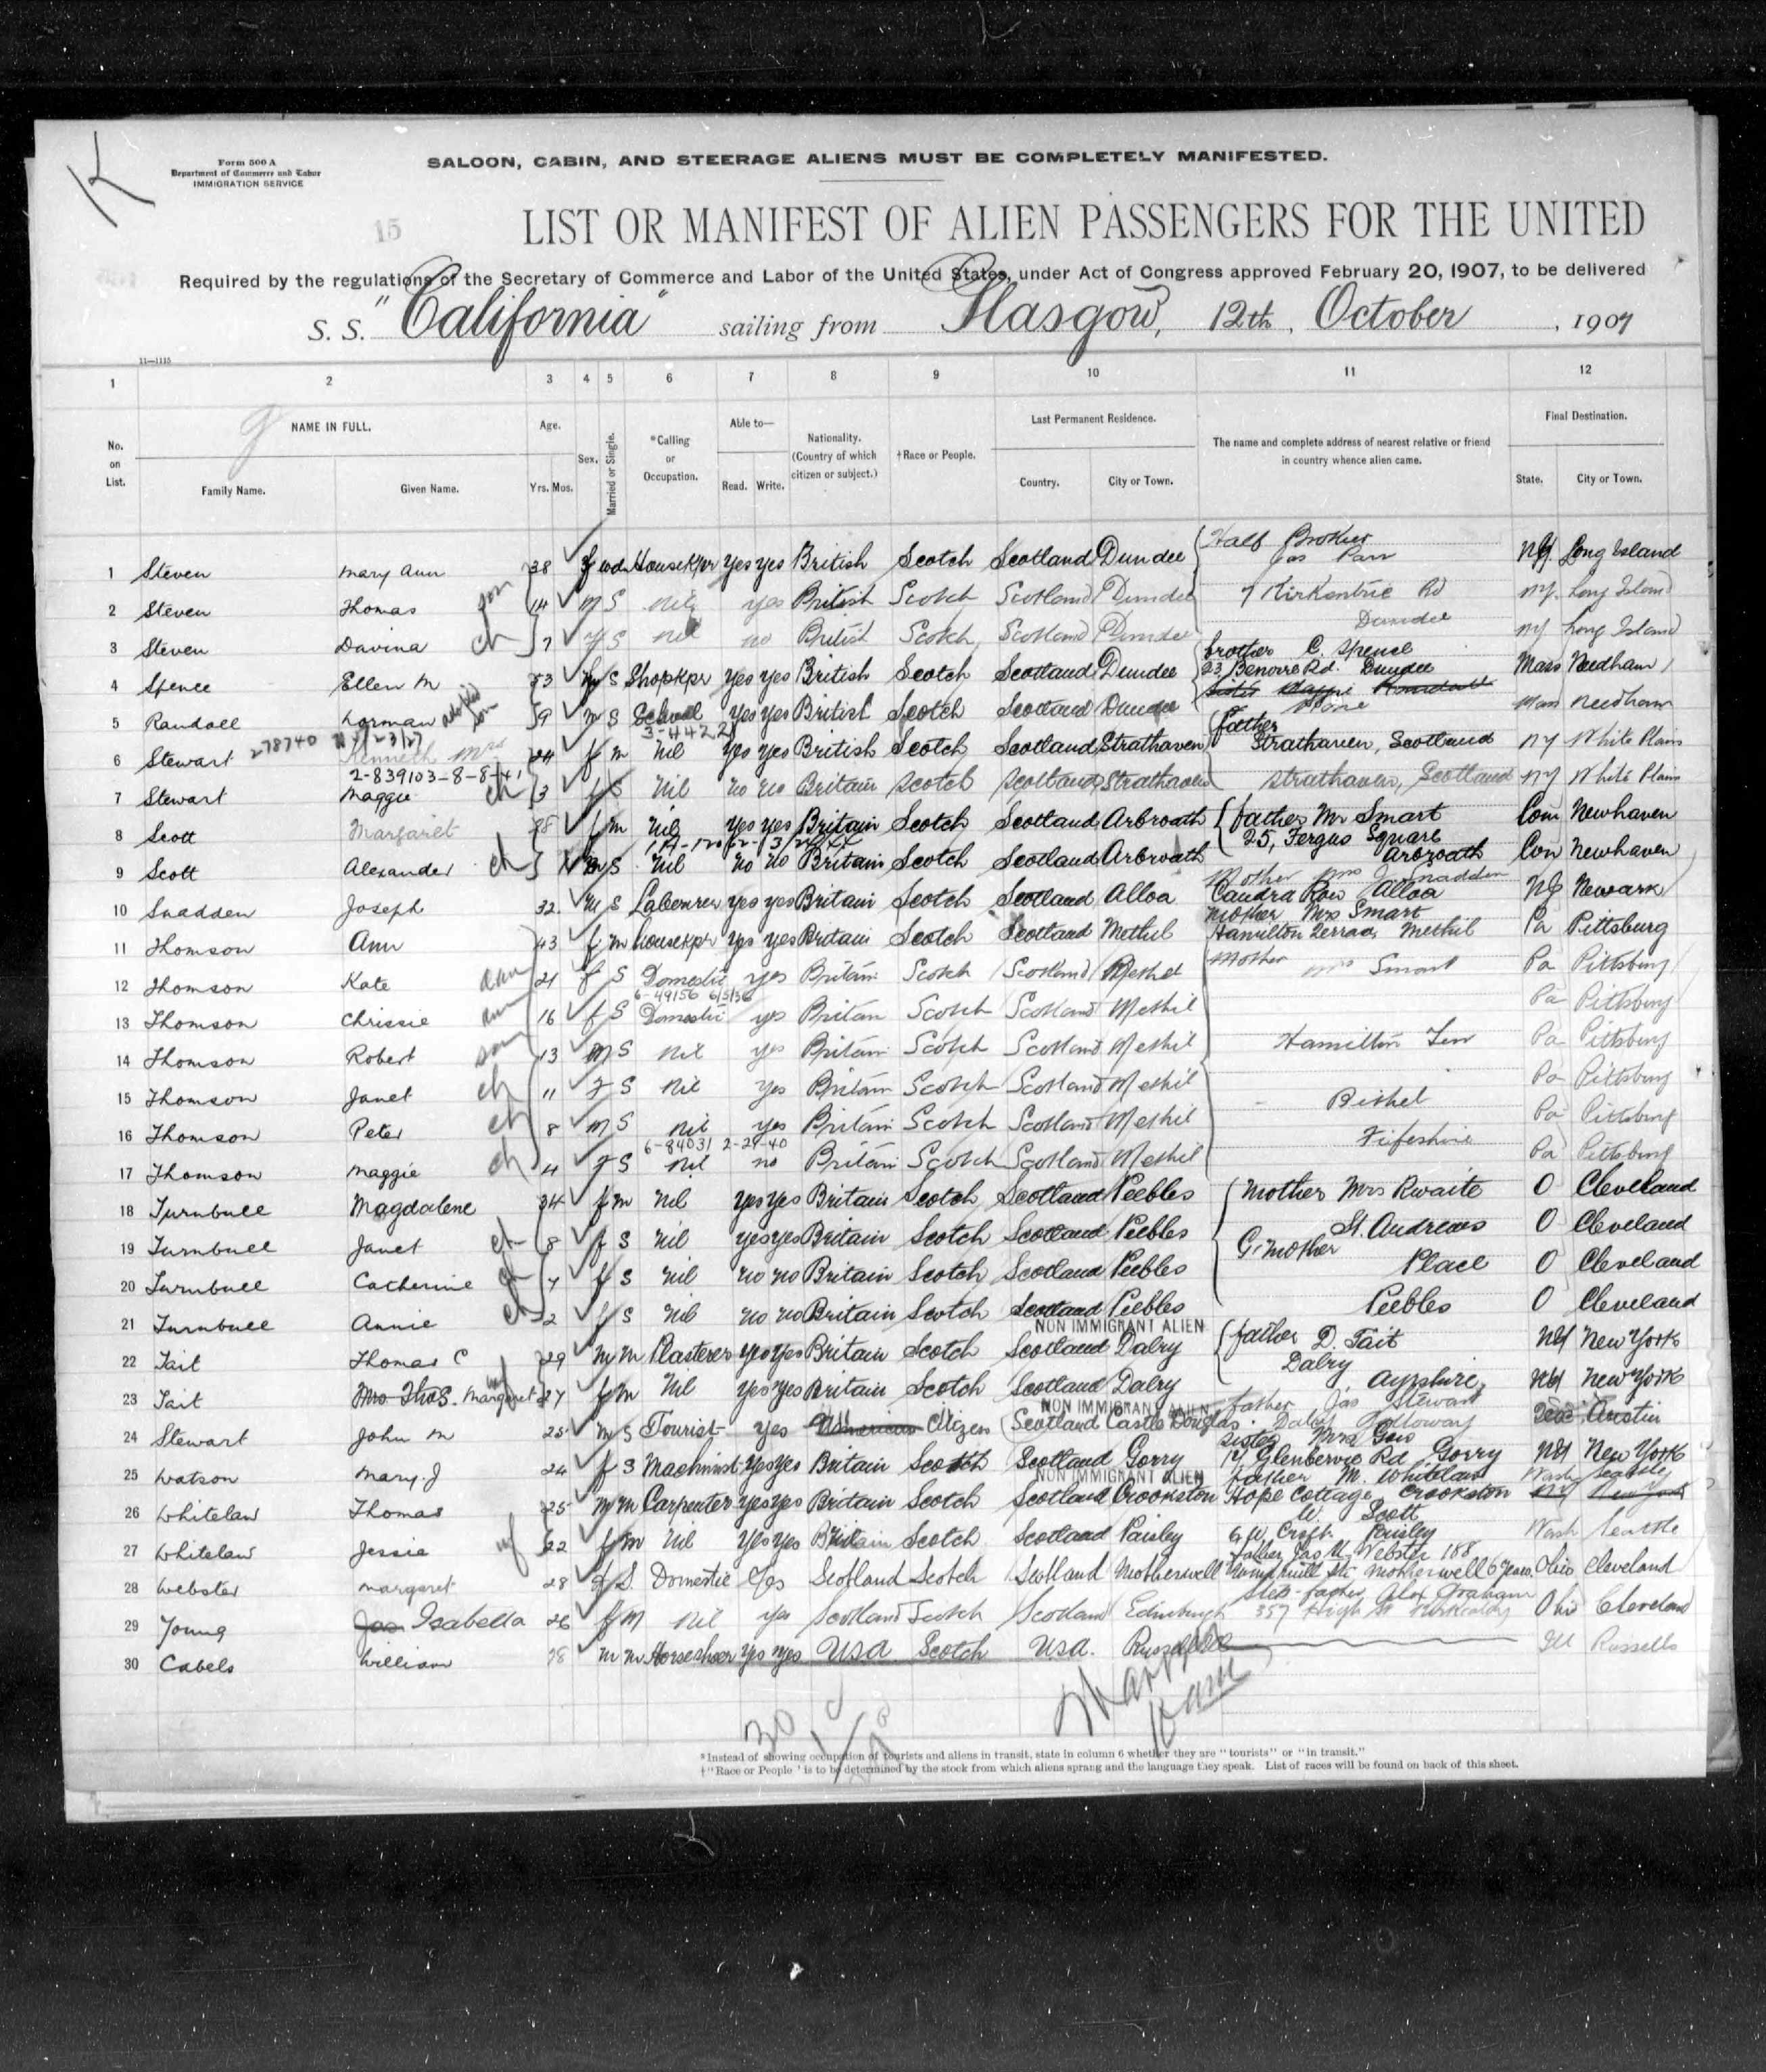 K
Form 500 A
Department of Commerce and Labor
IMMIGRATION SERVICE
SALOON, CABIN, AND STEERAGE ALIENS MUST BE COMPLETELY MANIFESTED.
15
LIST OR MANIFEST OF ALIEN PASSENGERS FOR THE UNITED
Required by the regulations of the Secretary of Commerce and Labor of the United States, under Act of Congress approved February 20, 1907, to be delivered
S. S. "California" sailing from Glasgow, 12th, October, 1907
11—1115
1 2 3 4 5 6 7 8 9 10 11 12
No. on List.
NAME IN FULL.
Family Name. Given Name.
Age.
Yrs. Mos.
Sex.
Married or Single.
*Calling or Occupation.
Able to—
Read. Write.
Nationality. (Country of which citizen or subject.)
†Race or People.
Last Permanent Residence.
Country. City or Town.
The name and complete address of nearest relative or friend in country whence alien came.
Final Destination.
State. City or Town.
Half Brother
1 Steven Mary Ann 38 f wd Housekpr yes yes British Scotch Scotland Dundee Jas Parr NY Long Island
2 Steven Thomas son 14 m S nil yes British Scotch Scotland Dundee 7 Kirkentrie Rd NY. Long Island
Dundee
3 Steven Davina ch 7 f S nil no British Scotch Scotland Dundee NY Long Island
brother C. Spence
4 Spence Ellen M 53 S Shopkpr yes yes British Scotch Scotland Dundee Rd. Dundee Mass Needham
5 Randall Norman adopted son 9 m S School yes yes British Scotch Scotland Dundee None Mass Needham
278740 3-4422 father
6 Stewart Kenneth Mrs 24 f m nil yes yes British Scotch Scotland Strathaven Strathaven, Scotland NY White Plains
2-839103-8-8-41
7 Stewart Maggie ch 3 f S nil no no Britain Scotch Scotland Strathaven Strathaven, Scotland NY White Plains
8 Scott Margaret 28 f m nil yes yes Britain Scotch Scotland Arbroath father Mr Smart Conn Newhaven
25, Fergus Square
9 Scott Alexander ch m S nil no no Britain Scotch Scotland Arbroath Arbroath Con Newhaven
Mother Mrs J Snadden
10 Snadden Joseph 32 m S Labourer yes yes Britain Scotch Scotland Alloa Row Alloa NJ Newark
mother Mrs Smart
11 Thomson Ann 43 f m housekpr yes yes Britain Scotch Scotland Methil Hamilton Terrace, Methil Pa Pittsburg
12 Thomson Kate dau 21 f S Domestic yes Britain Scotch Scotland Methil Mother Mrs Smart Pa Pittsburg
6-49156 6/5/36
13 Thomson Chrissie dau 16 f S Domestic yes Britain Scotch Scotland Methil Pa Pittsburg
14 Thomson Robert son 13 m S nil yes Britain Scotch Scotland Methil Hamilton Terr Pa Pittsburg
15 Thomson Janet ch 11 f S nil yes Britain Scotch Scotland Methil Pa Pittsburg
16 Thomson Peter ch 8 m S nil yes Britain Scotch Scotland Methil Pa Pittsburg
6-84031 2-29-40 Fifeshire
17 Thomson Maggie ch 4 f S nil no Britain Scotch Scotland Methil Pa Pittsburg
18 Turnbull Magdalene 34 f m nil yes yes Britain Scotch Scotland Peebles Mother Mrs Kwaite O Cleveland
19 Turnbull Janet ch 8 f S nil yes yes Britain Scotch Scotland Peebles St. Andrews O Cleveland
G. mother
20 Turnbull Catherine ch 4 f S nil no no Britain Scotch Scotland Peebles Place O Cleveland
21 Turnbull Annie ch 2 f S nil no no Britain Scotch Scotland Peebles Peebles O Cleveland
NON IMMIGRANT ALIEN
22 Tait Thomas C 29 m m Plasterer yes yes Britain Scotch Scotland Dalry father D. Tait NY New York
Dalry
23 Tait Mrs Thos. Margaret wf 27 f m Nil yes yes Britain Scotch Scotland Dalry Ayrshire, NY New York
NON IMMIGRANT ALIEN father Jas Stewart
24 Stewart John M 25 m S Tourist yes American Citizen Scotland Castle Douglas Dalry Galloway Austin
sister Mrs
25 Watson Mary. J 24 f S Machinist yes yes Britain Scotch Scotland Gorry 14 Glenbervie Rd Gorry NY New York
NON IMMIGRANT ALIEN father M. Whitelaw Wash Seattle
26 Whitelaw Thomas 25 m m Carpenter yes yes Britain Scotch Scotland Crookston Hope Cottage, Crookston NY New York
W. Scott
27 Whitelaw Jessie wf 22 f m nil yes yes Britain Scotch Scotland Paisley Croft Paisley Wash Seattle
father Jas Webster 188
28 Webster Margaret 28 f S. Domestic yes Scotland Scotch Scotland Motherwell Motherwell 6 years Ohio Cleveland
Step-father Alex Graham
29 Young Jas Isabella 26 f M nil yes Scotland Scotch Scotland Edinburgh 357 High St Kirkcaldy Ohio Cleveland
30 Cabels William 28 m m Horseshoer yes yes USA Scotch USA. Ill Russells
30
*Instead of showing occupation of tourists and aliens in transit, state in column 6 whether they are "tourists" or "in transit."
†"Race or People" is to be determined by the stock from which aliens sprang and the language they speak. List of races will be found on back of this sheet.